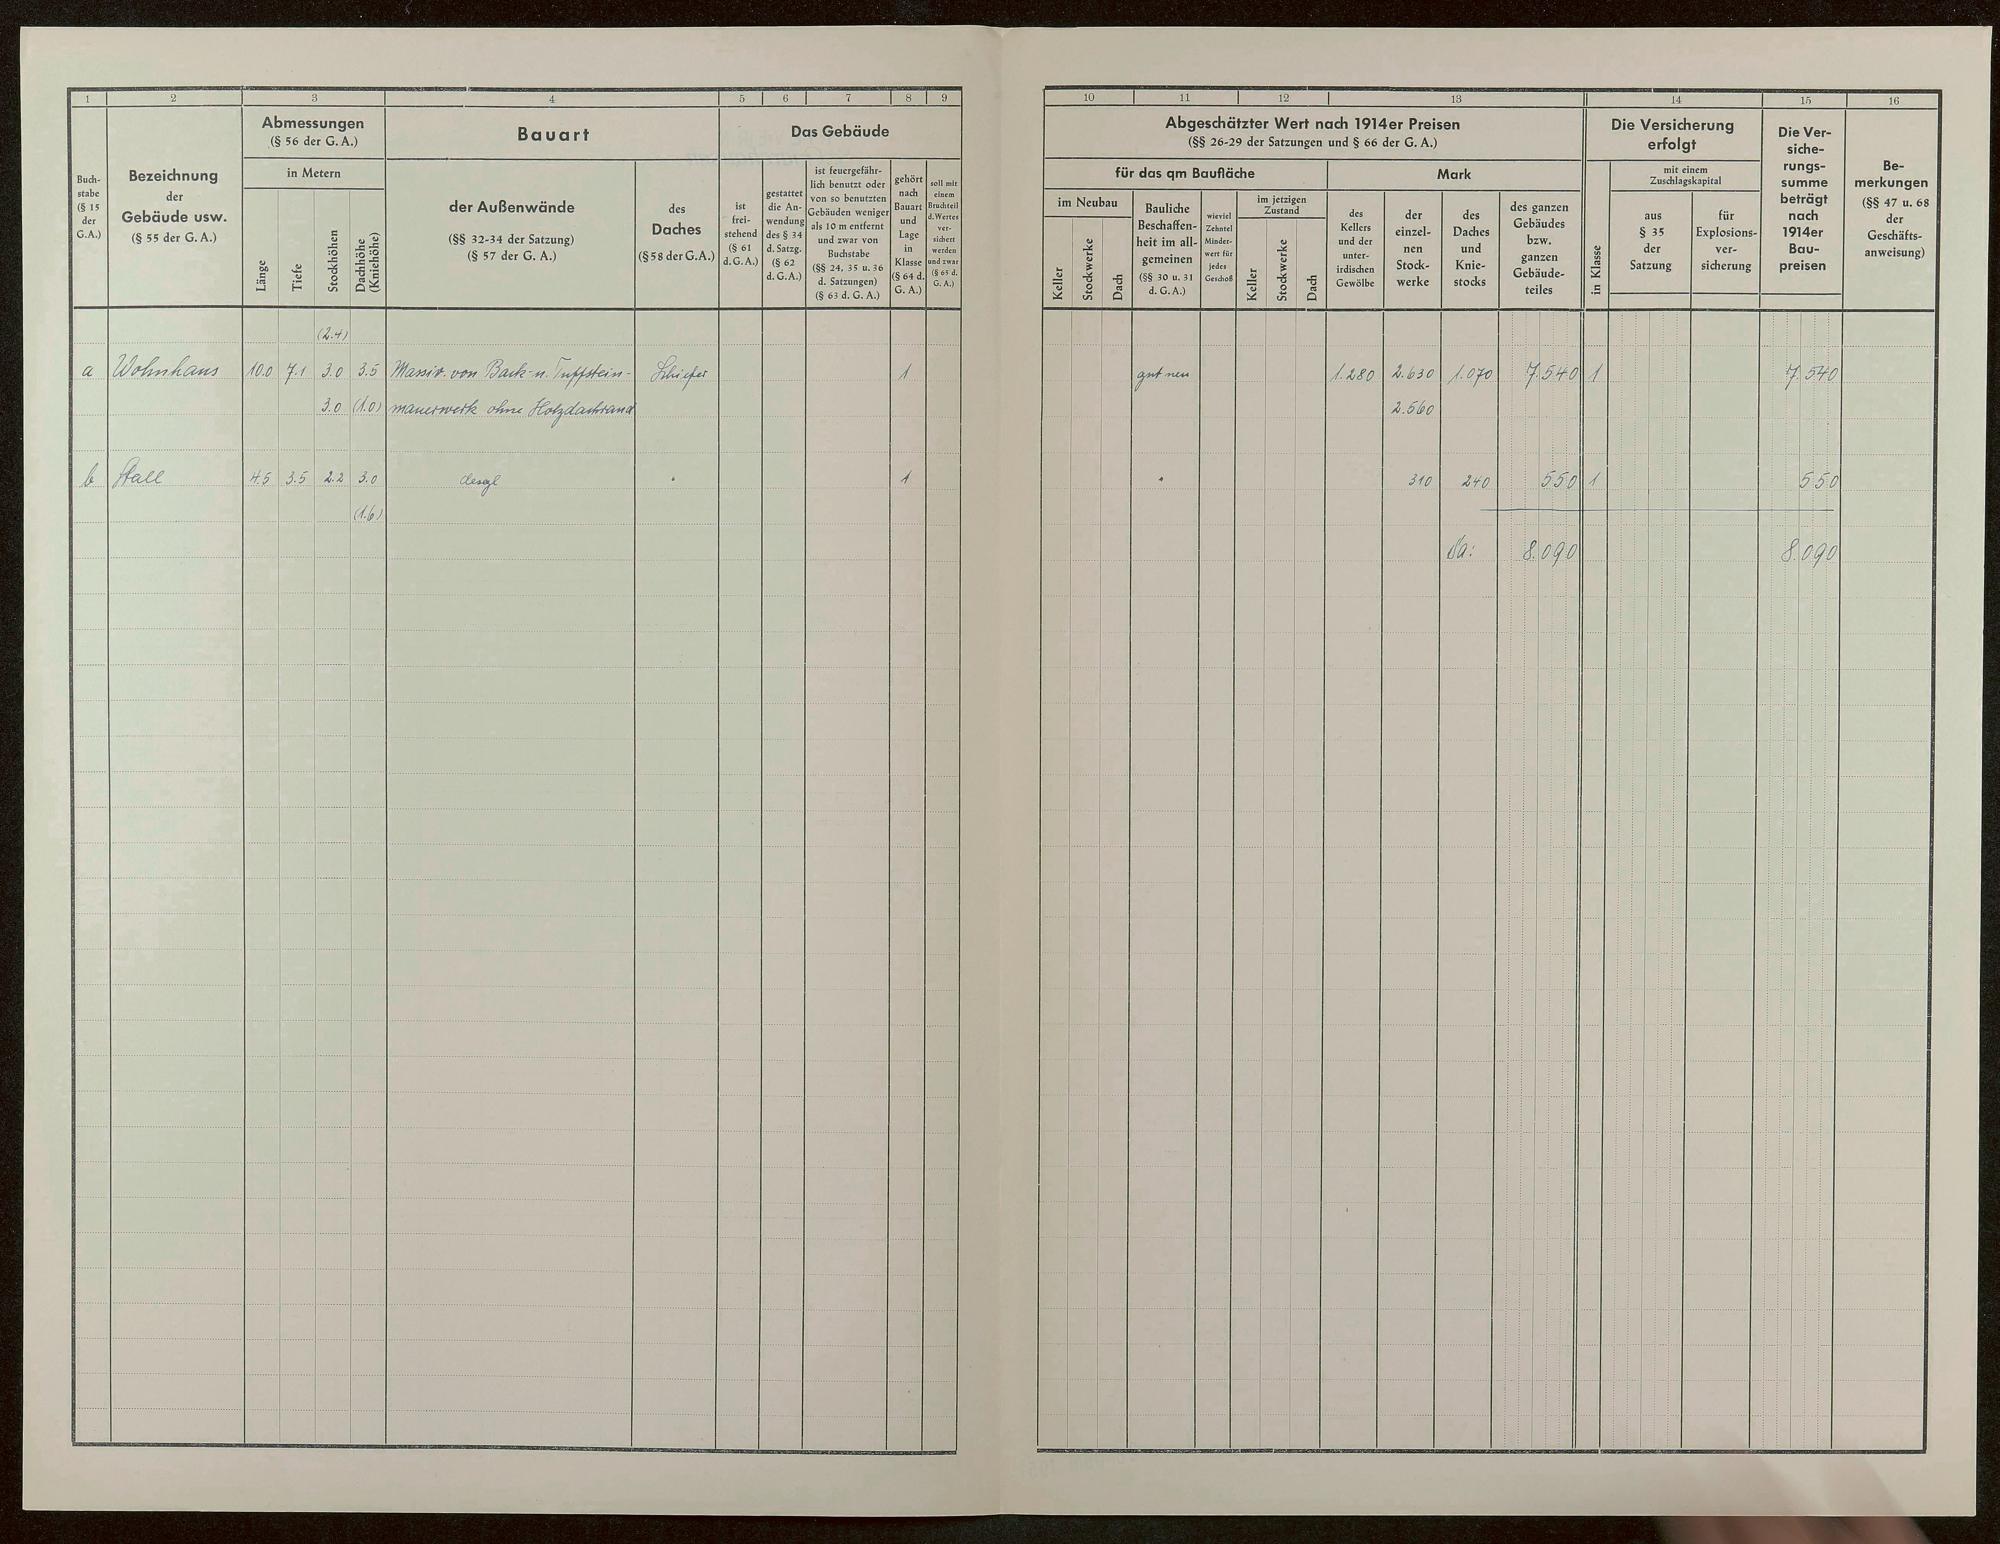 1 2 3 4 5 6 7 8 9
Buch-
stabe
(§ 15
der
G.A.)
Bezeichnung
der
Gebäude usw.
(§ 55 der G. A.)
Abmessungen
(§ 56 der G. A.)
in Metern
Länge
Tiefe
Stockhöhen
Dachhöhe
(Kniehöhe)
Bauart
der Außenwände
(§§ 32-34 der Satzung)
(§ 57 der G. A.)
des
Daches
(§ 58 der G. A.)
Das Gebäude
ist
frei-
stehend
(§ 61
d. G. A.)
gestattet
die An-
wendung
des § 34
d. Satzg.
(§ 62
d. G. A.)
ist feuergefähr-
lich benutzt oder
von so benutzten
Gebäuden weniger
als 10 m entfernt
und zwar von
Buchstabe
(§§ 24, 35 u. 36
d. Satzungen)
(§ 63 d. G. A.)
gehört
nach
Bauart
und
Lage
in
Klasse
(§ 64 d.
G. A.)
soll mit
einem
Bruchteil
d. Wertes
ver-
sichert
werden
und zwar
(§ 65 d.
G. A.)
(2.4)
a Wohnhaus 10.0 7.1 3.0 3.5 Massiv. von Back- u. Tuffstein- Schiefer 1
3.0 (1.0) mauerwerk ohne Holzdachrand
b Stall 4.5 3.5 2.2 3.0 desgl " 1
(1.6)
10 11 12 13 14 15 16
Abgeschätzter Wert nach 1914er Preisen
(§§ 26-29 der Satzungen und § 66 der G. A.)
für das qm Baufläche
im Neubau
Keller
Stockwerke
Dach
Bauliche
Beschaffen-
heit im all-
gemeinen
(§§ 30 u. 31
d. G. A.)
wieviel
Zehntel
Minder-
wert für
jedes
Geschoß
im jetzigen
Zustand
Keller
Stockwerke
Dach
Mark
des
Kellers
und der
unter-
irdischen
Gewölbe
der
einzel-
nen
Stock-
werke
des
Daches
und
Knie-
stocks
des ganzen
Gebäudes
bzw.
ganzen
Gebäude-
teiles
Die Versicherung
erfolgt
in Klasse
mit einem
Zuschlagskapital
aus
§ 35
der
Satzung
für
Explosions-
ver-
sicherung
Die Ver-
siche-
rungs-
summe
beträgt
nach
1914er
Bau-
preisen
Be-
merkungen
(§§ 47 u. 68
der
Geschäfts-
anweisung)
gut neu 1.280 2.630 1.070 7.540 1 7.540
2.560
" 310 240 550 1 550
Sa: 8.090 8.090